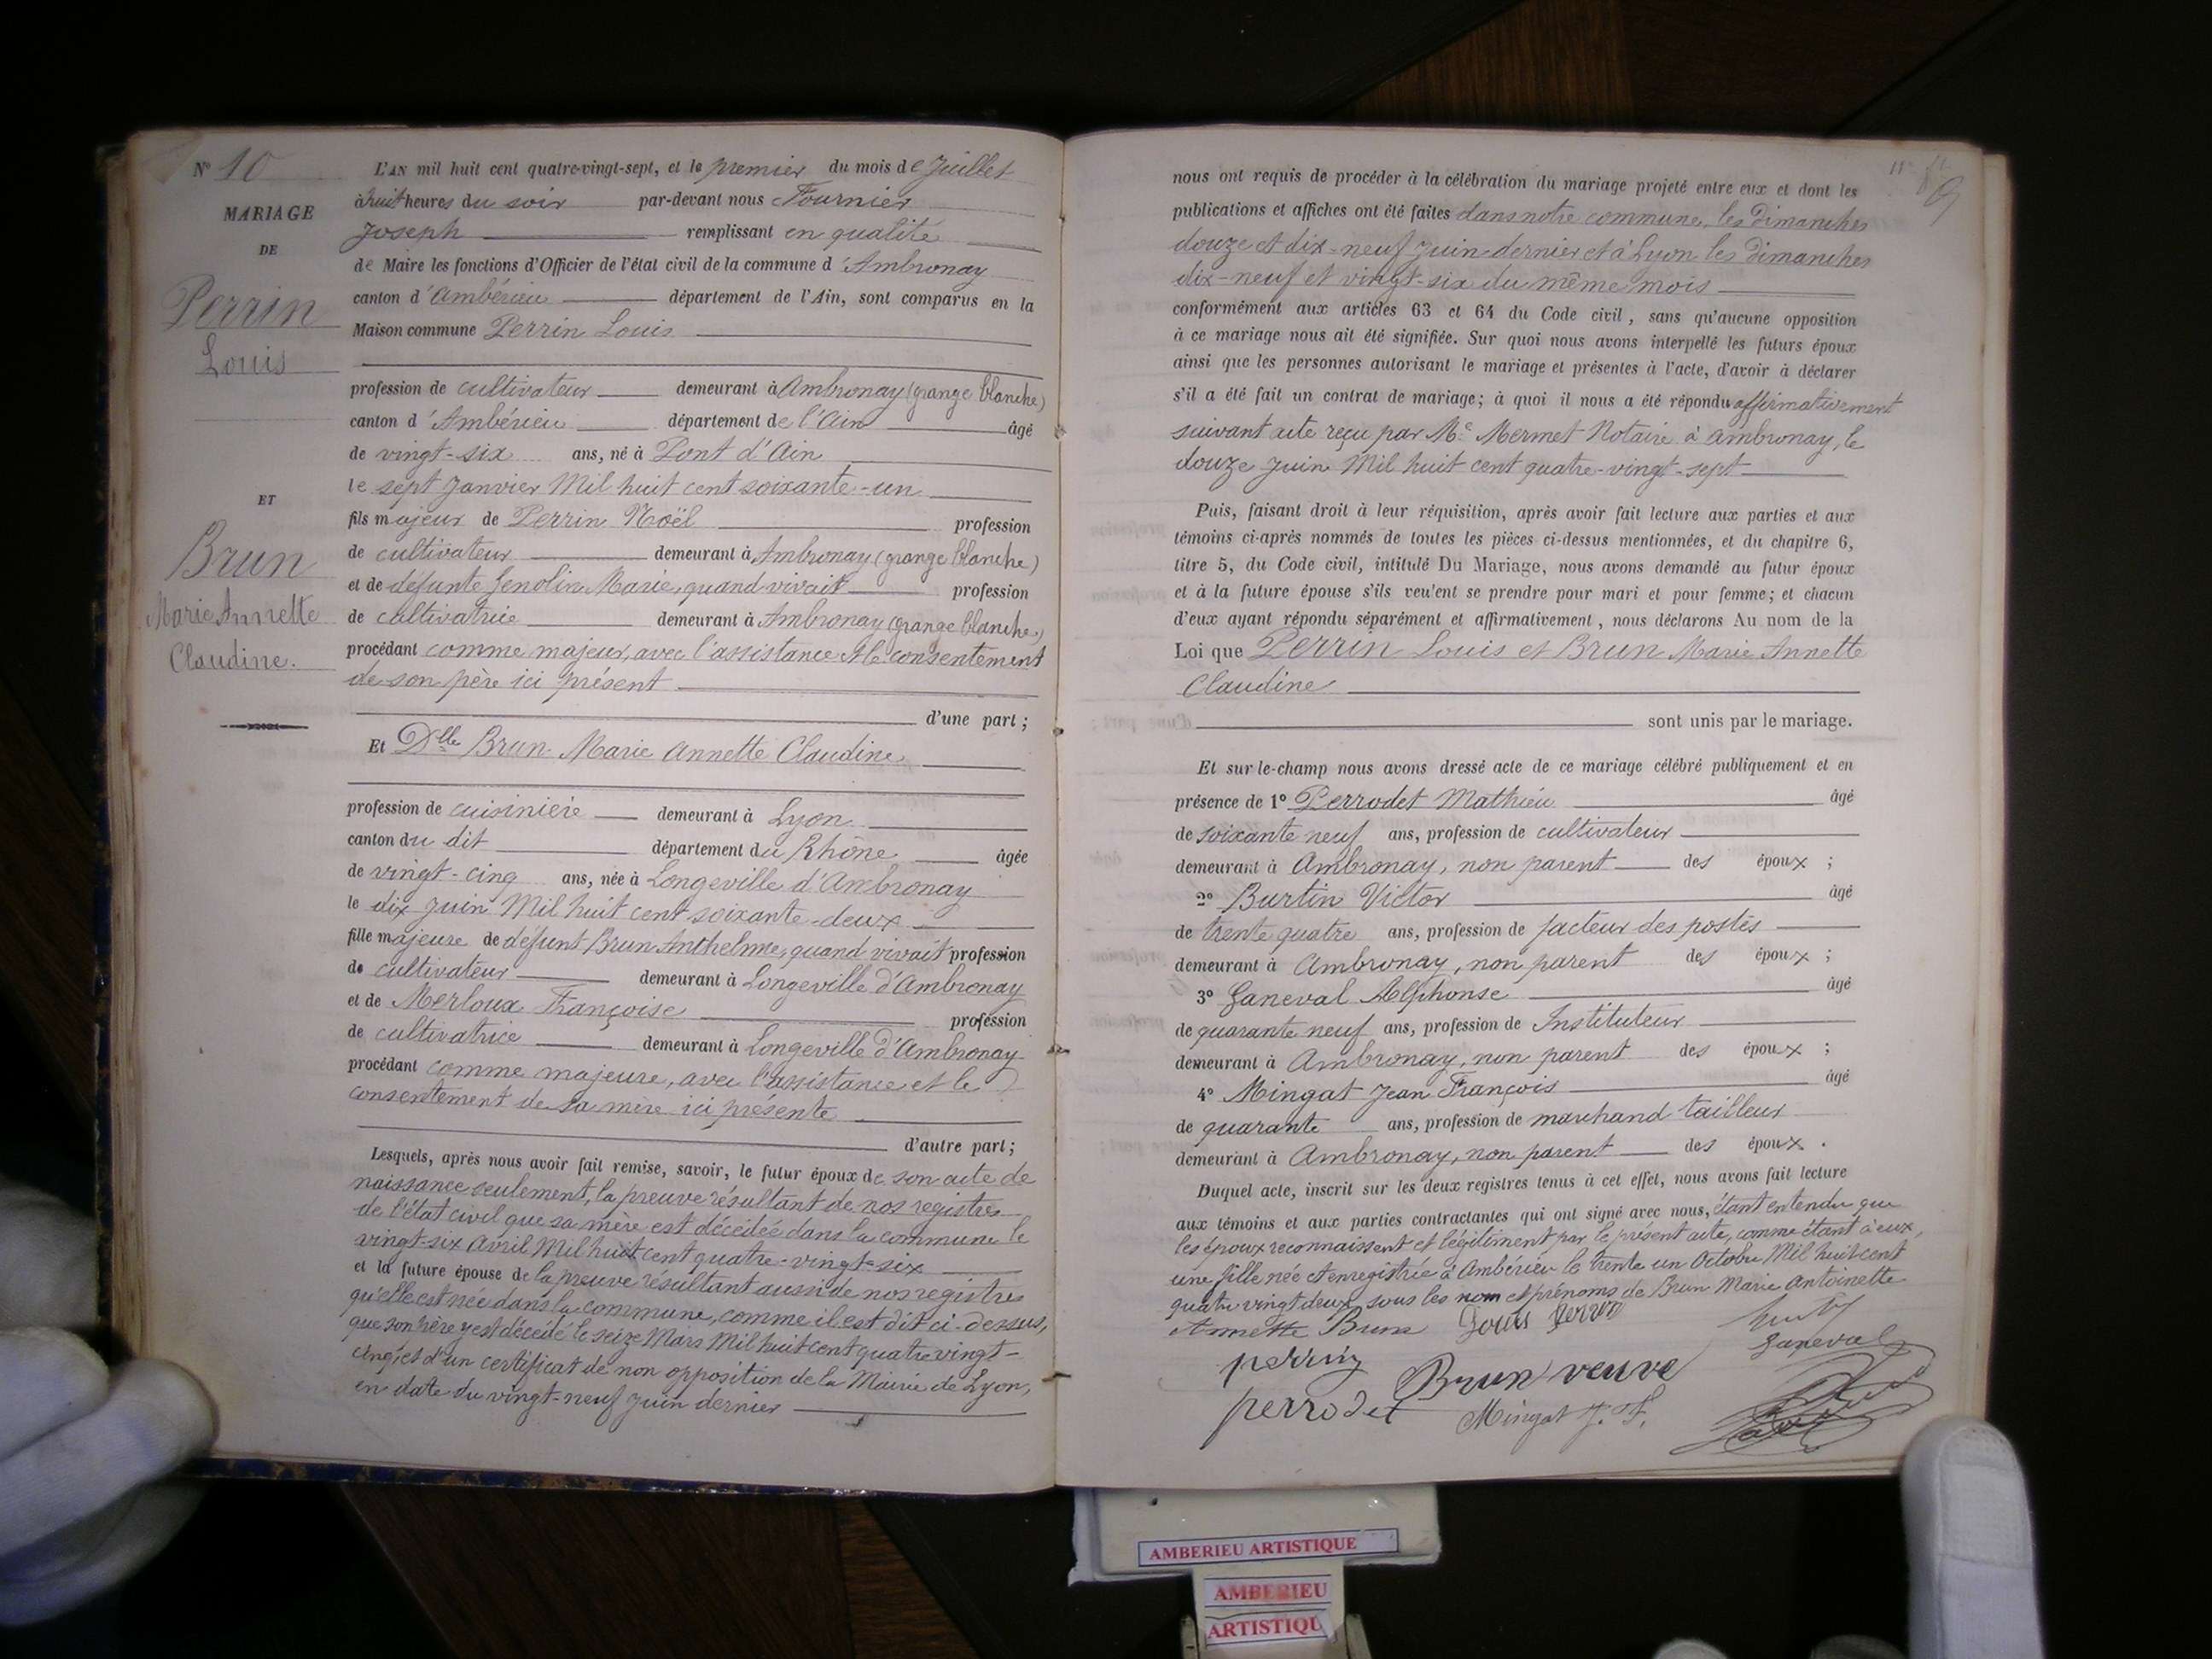 N° 10
MARIAGE
DE
Perrin
Louis
ET
Brun
Marie Annette
Claudine.
L'AN mil huit cent quatre-vingt-sept, et le premier du mois de Juillet
à huit heures du soir par-devant nous Fournier
Joseph remplissant en qualité
de Maire les fonctions d'Officier de l'état civil de la commune d'Ambronay
canton d'Ambérieu département de l'Ain, sont comparus en la
Maison commune Perrin Louis
profession de cultivateur demeurant à Ambronay (grange blanche)
canton d'Ambérieu département de l'Ain âgé
de vingt-six ans, né à Pont d'Ain
le sept Janvier Mil huit cent soixante-un
fils majeur de Perrin Noël profession
de cultivateur demeurant à Ambronay (grange blanche)
et de défunte Genolin Marie, quand vivait profession
de cultivatrice demeurant à Ambronay (grange blanche)
procédant comme majeur, avec l'assistance et le consentement
de son père ici présent
d'une part;
Et Dlle Brun Marie Annette Claudine
profession de cuisinière demeurant à Lyon
canton du dit département du Rhône âgée
de vingt-cinq ans, née à Longeville d'Ambronay
le dix Juin Mil huit cent soixante-deux
fille majeure de défunt Brun Anthelme, quand vivait profession
de cultivateur demeurant à Longeville d'Ambronay
et de Merloux Françoise profession
de cultivatrice demeurant à Longeville d'Ambronay
procédant comme majeure, avec l'assistance et le
consentement de sa mère ici présente
d'autre part;
Lesquels, après nous avoir fait remise, savoir, le futur époux de son acte de
naissance seulement, la preuve résultant de nos registres
de l'état civil que sa mère est décédée dans la commune le
vingt-six Avril Mil huit cent quatre-vingt-six
et la future épouse de la preuve résultant aussi de nos registres
qu'elle est née dans la commune, comme il est dit ci-dessus,
que son père y est décédé le seize Mars Mil huit cent quatre vingt-
cinq; et d'un certificat de non opposition de la Mairie de Lyon,
en date du vingt-neuf Juin dernier
nous ont requis de procéder à la célébration du mariage projeté entre eux et dont les
publications et affiches ont été faites dans notre commune, les Dimanches
douze et dix-neuf Juin dernier et à Lyon les Dimanches
dix-neuf et vingt-six du même mois
conformément aux articles 63 et 64 du Code civil, sans qu'aucune opposition
à ce mariage nous ait été signifiée. Sur quoi nous avons interpellé les futurs époux
ainsi que les personnes autorisant le mariage et présentes à l'acte, d'avoir à déclarer
s'il a été fait un contrat de mariage; à quoi il nous a été répondu affirmativement
suivant acte reçu par Me Mermet Notaire à Ambronay, le
douze Juin Mil huit cent quatre-vingt-sept
Puis, faisant droit à leur réquisition, après avoir fait lecture aux parties et aux
témoins ci-après nommés de toutes les pièces ci-dessus mentionnées, et du chapitre 6,
titre 5, du Code civil, intitulé Du Mariage, nous avons demandé au futur époux
et à la future épouse s'ils veu'ent se prendre pour mari et pour femme; et chacun
d'eux ayant répondu séparément et affirmativement, nous déclarons Au nom de la
Loi que Perrin Louis et Brun Marie Annette
Claudine
sont unis par le mariage.
Et sur-le-champ nous avons dressé acte de ce mariage célébré publiquement et en
présence de 1° Perrodet Mathieu âgé
de soixante neuf ans, profession de cultivateur
demeurant à Ambronay, non parent des époux ;
2° Burtin Victor âgé
de trente quatre ans, profession de facteur des postes
demeurant à Ambronay, non parent des époux ;
3° Ganeval Alphonse âgé
de quarante neuf ans, profession de Instituteur
demeurant à Ambronay, non parent des époux ;
4° Mingat Jean François âgé
de quarante ans, profession de marchand tailleur
demeurant à Ambronay, non parent des époux.
Duquel acte, inscrit sur les deux registres tenus à cet effet, nous avons fait lecture
aux témoins et aux parties contractantes qui ont signé avec nous, étant entendu que
les époux reconnaissent et légitiment par le présent acte, comme étant à eux,
une fille née et enregistrée à Ambérieu le trente un Octobre Mil huit cent
quatre vingt deux sous les nom et prénoms de Brun Marie Antoinette
Annette Brun Louis Perrin
Ganeval
perrin Brun veuve
perrodet Mingat J. F.
AMBERIEU ARTISTIQUE
AMBERIEU
ARTISTIQU